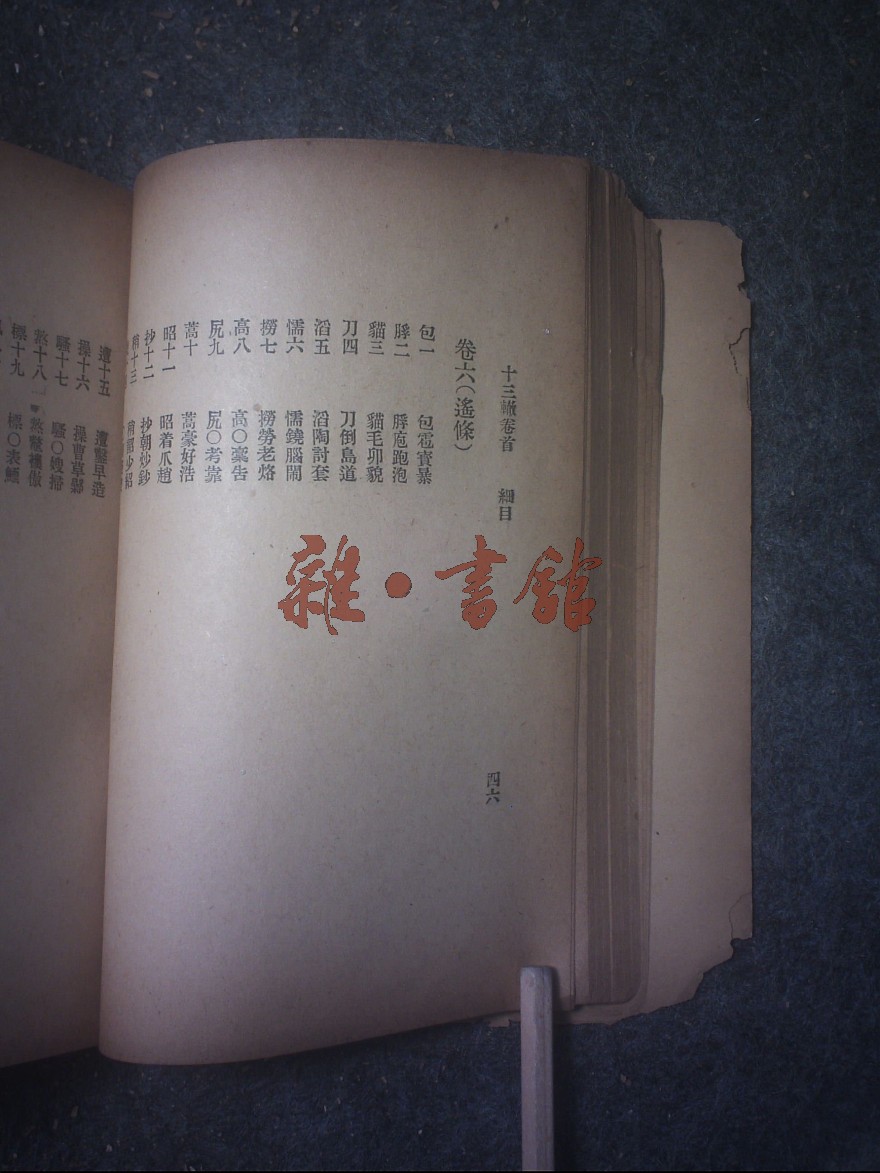 十三轍卷首 細目
四六
卷六(遙條)
包一 包雹寶暴
脬二 脬庖跑泡
貓三 貓毛卯貌
刀四 刀倒島道
滔五 滔陶討套
懦六 懦鐃腦鬧
撈七 撈勞老烙
高八 高〇稾告
尻九 尻〇考靠
蒿十 蒿豪好浩
昭十一 昭着爪趙
抄十二 抄朝炒鈔
十三 韶少紹
遭十五 遭鑿早造
操十六 操曹草
騷十七 騷〇嫂掃
熬十八 熬襖傲
標十九 標〇表鰾
雜·書館